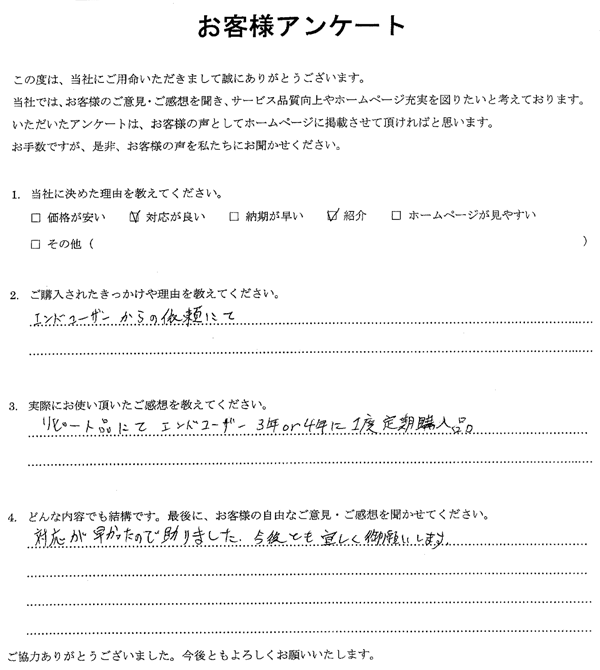 お客様アンケート
この度は、当社にご用命いただきまして誠にありがとうございます。
当社では、お客様のご意見・ご感想を聞き、サービス品質向上やホームページ充実を図りたいと考えております。
いただいたアンケートは、お客様の声としてホームページに掲載させて頂ければと思います。
お手数ですが、是非、お客様の声を私たちにお聞かせください。
1. 当社に決めた理由を教えてください。
□ 価格が安い ☑ 対応が良い □ 納期が早い ☑ 紹介 □ ホームページが見やすい
□ その他 ( )
2. ご購入されたきっかけや理由を教えてください。
エンドユーザーからの依頼にて
3. 実際にお使い頂いたご感想を教えてください。
リピート品にて エンドユーザー 3年or4年に1度定期購入品。
4. どんな内容でも結構です。最後に、お客様の自由なご意見・ご感想を聞かせてください。
対応が早かったので助りました。今後とも宜しく御願いします。
ご協力ありがとうございました。今後ともよろしくお願いいたします。